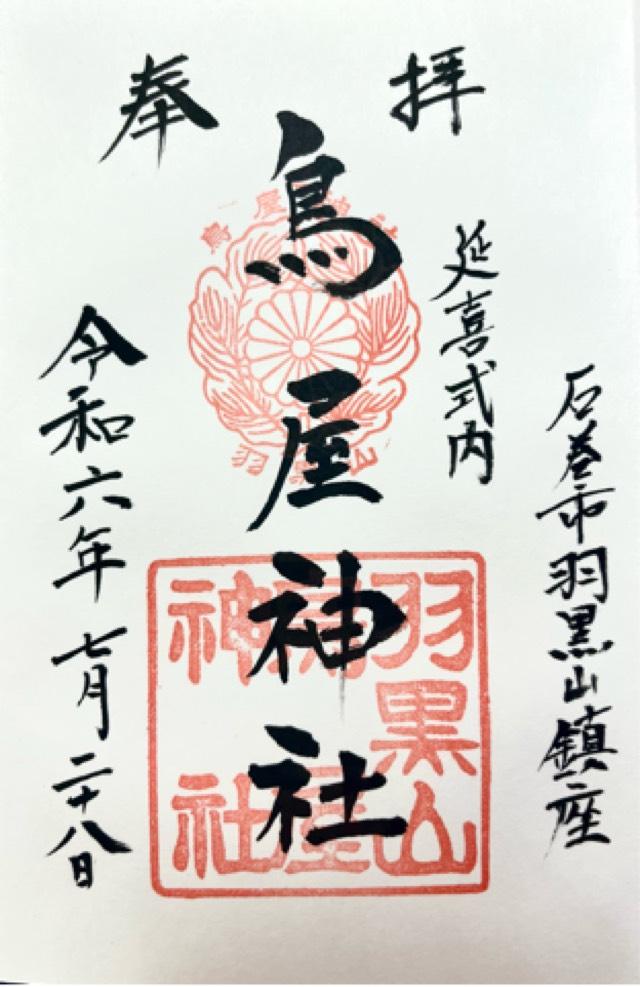 奉拝
石巻市羽黒山鎮座
延喜式内
鳥屋神社
令和六年七月二十八日
鳥屋神社
羽黒山
鳥屋
神社